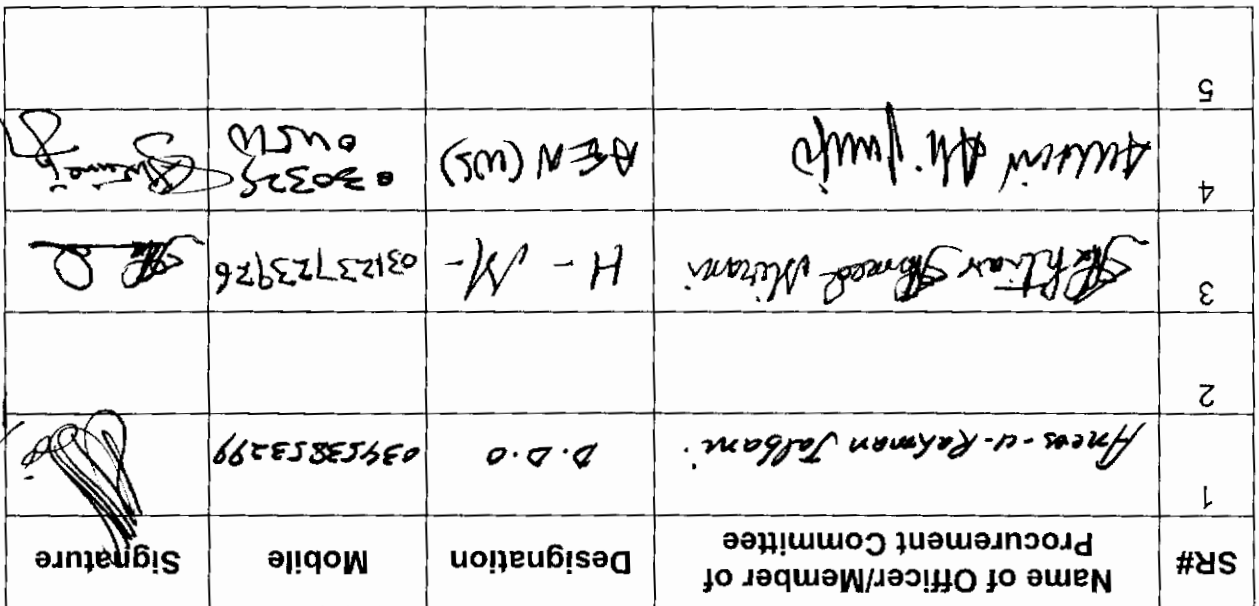 SR# Name of Officer/Member of Procurement Committee Designation Mobile Signature
1 Anees-u-Rahman Jalbani D.D.O 03453853299
2
3 Ahmed Mirani H-M- 03123723926
4 Ali AEN (WS) 
5